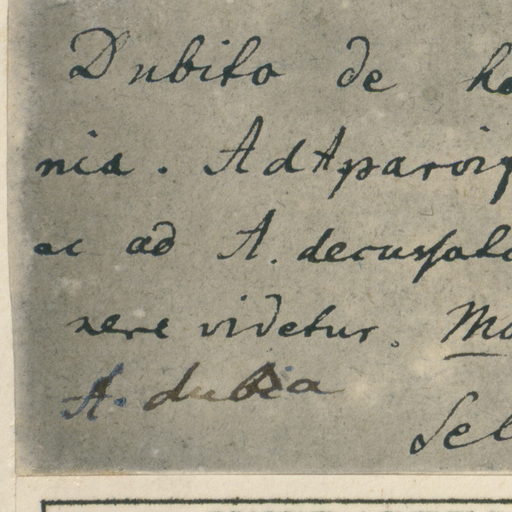 Dubito de
nia. Ad A parvi
ac ad A. decussat
nere videtur.
A. dubia
Sel